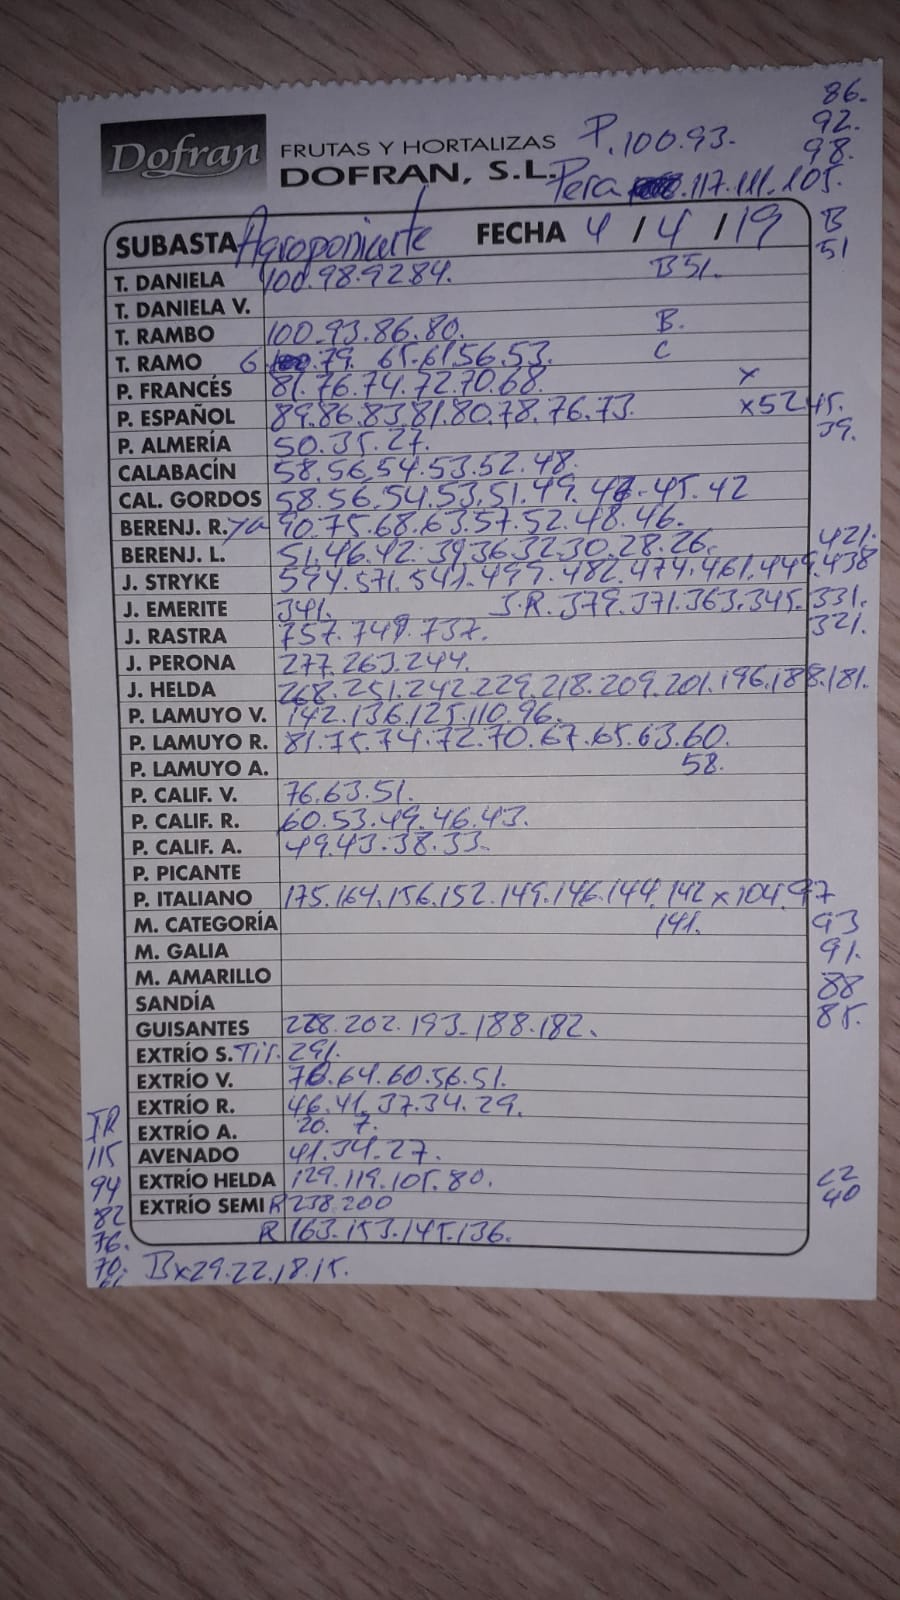 86.
92.
98.
Dofran FRUTAS Y HORTALIZAS P.100.93.
DOFRAN, S.L. Pera .117.111.105.
SUBASTA Agroponiente FECHA 4 / 4 / 19 B
51
T. DANIELA 100.98.92.84. B51.
T. DANIELA V.
T. RAMBO 100.93.86.80. B.
T. RAMO G 79. 65.61.56.53. C
P. FRANCÉS 81.76.74.72.70.68. x
P. ESPAÑOL 89.86.83.81.80.78.76.73. x52.45.
39.
P. ALMERÍA 50.35.27.
CALABACÍN 58.56.54.53.52.48.
CAL. GORDOS 58.56.54.53.51.49. 45.42
BERENJ. R. 90.75.68.63.57.52.48.46.
BERENJ. L. 51.46.42.39.36.32.30.28.26. 421.
J. STRYKE 594.571.541.499.482.474.461.449.438
J. EMERITE 341. J.R.379.371.363.345.331.
321.
J. RASTRA 757.749.737.
J. PERONA 277.263.244.
J. HELDA 268.251.242.229.218.209.201.196.188.181.
P. LAMUYO V. 142.136.125.110.96.
P. LAMUYO R. 81.75.74.72.70.67.65.63.60.
P. LAMUYO A. 58.
P. CALIF. V. 76.63.51.
P. CALIF. R. 60.53.49.46.43.
P. CALIF. A. 49.43.38.33.
P. PICANTE
P. ITALIANO 175.164.156.152.149.146.144.142 x104.97
M. CATEGORÍA 141. 93
M. GALIA 91.
M. AMARILLO 88
SANDÍA 85.
GUISANTES 202.193.188.182.
EXTRÍO S. 291.
EXTRÍO V. 64.60.56.51.
EXTRÍO R. 46.41.37.34.29.
EXTRÍO A. 20. 7.
AVENADO 41.34.27.
EXTRÍO HELDA 129.119.105.80.
EXTRÍO SEMI R 238.200
R 163.153.145.136.
115
94
82
76.
70. Bx29.22.18.15.
40